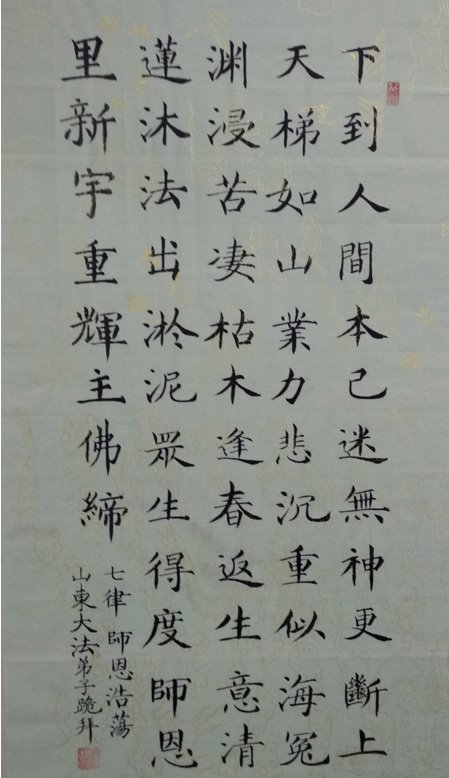 下到人間本己迷無神更斷上
天梯如山業力悲沉重似海冤
渊浸苦凄枯木逢春返生意清
蓮沐法出淤泥眾生得度師恩
里新宇重輝主佛締
七律 師恩浩蕩
山東大法弟子跪拜